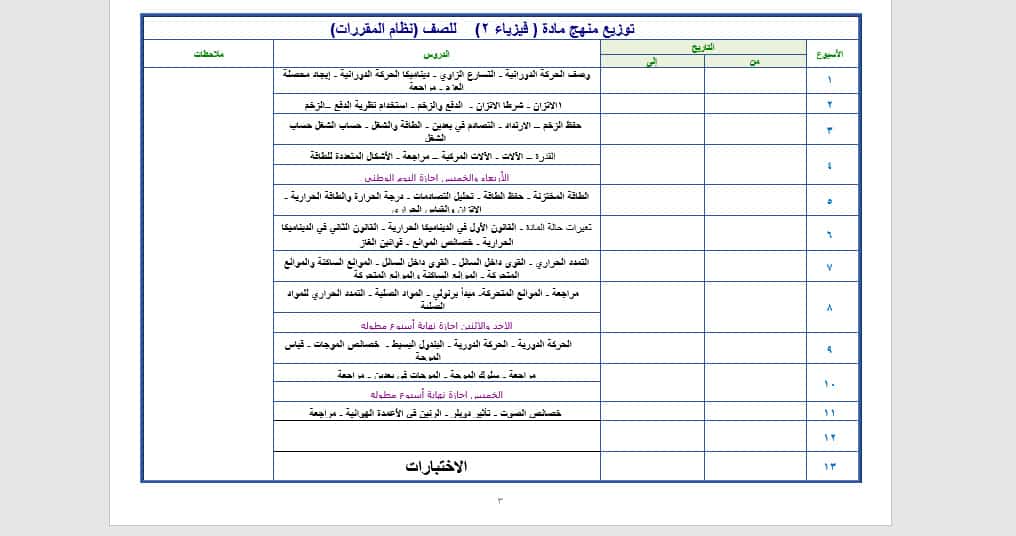 توزيع منهج مادة ( فيزياء ٢) للصف (نظام المقررات)
الأسبوع التاريخ الدروس ملاحظات
من إلى
١ وصف الحركة الدورانية - التسارع الزاوي - ديناميكا الحركة الدورانية - إيجاد محصلة
العزم - مراجعة
٢ الاتزان - شرطا الاتزان - الدفع والزخم - استخدام نظرية الدفع – الزخم
٣ حفظ الزخم – الارتداد - التصادم في بعدين - الطاقة والشغل - حساب الشغل حساب
الشغل
٤ القدرة – الآلات - الآلات المركبة – مراجعة - الأشكال المتعددة للطاقة
الأربعاء والخميس إجازة اليوم الوطني
٥ الطاقة المختزنة - حفظ الطاقة - تحليل التصادمات - درجة الحرارة والطاقة الحرارية -
الاتزان والقياس الحراري
٦ تغيرات حالة المادة - القانون الأول في الديناميكا الحرارية - القانون الثاني في الديناميكا
الحرارية - خصائص الموائع - قوانين الغاز
٧ التمدد الحراري - القوى داخل السائل - القوى داخل السائل - الموائع الساكنة والموائع
المتحركة - الموائع الساكنة والموائع المتحركة
٨ مراجعة - الموائع المتحركة- مبدأ برنولي - المواد الصلبة - التمدد الحراري للمواد
الصلبة
الاحد والاثنين اجازة نهاية أسبوع مطوله
٩ الحركة الدورية - الحركة الدورية - البندول البسيط - خصائص الموجات - قياس
الموجة
١٠ مراجعة - سلوك الموجة - الموجات في بعدين - مراجعة
الخميس اجازة نهاية أسبوع مطوله
١١ خصائص الصوت - تأثير دوبلر - الرنين في الأعمدة الهوائية - مراجعة
١٢
١٣ الاختبارات
٣